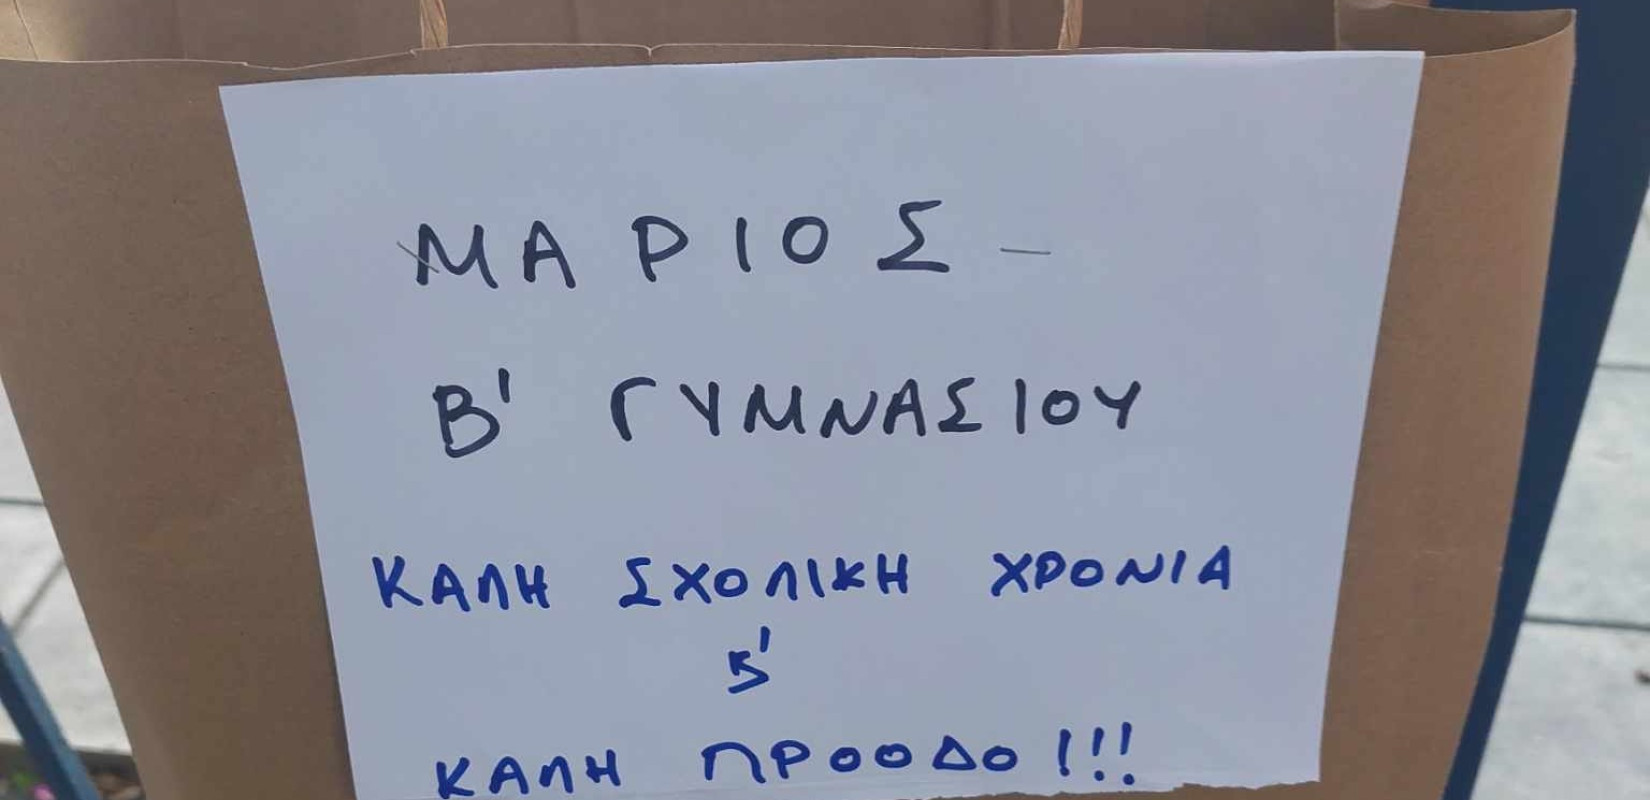 ΜΑΡΙΟΣ -
Β' ΓΥΜΝΑΣΙΟΥ
ΚΑΛΗ ΣΧΟΛΙΚΗ ΧΡΟΝΙΑ
ϗ'
ΚΑΛΗ ΠΡΟΟΔΟ!!!